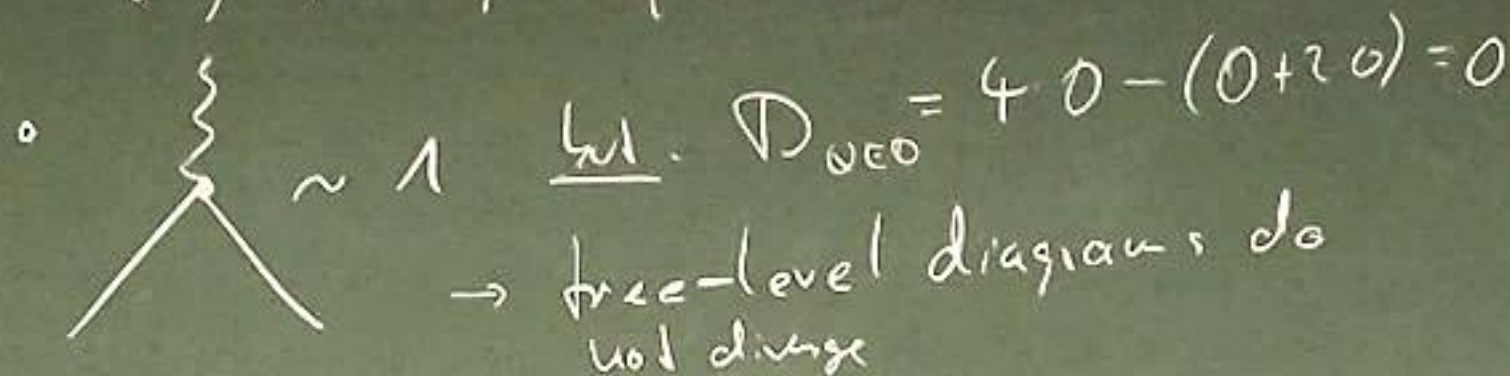 ~ 1 but. D_QED = 4·0-(0+2·0)=0
→ tree-level diagrams do
not diverge